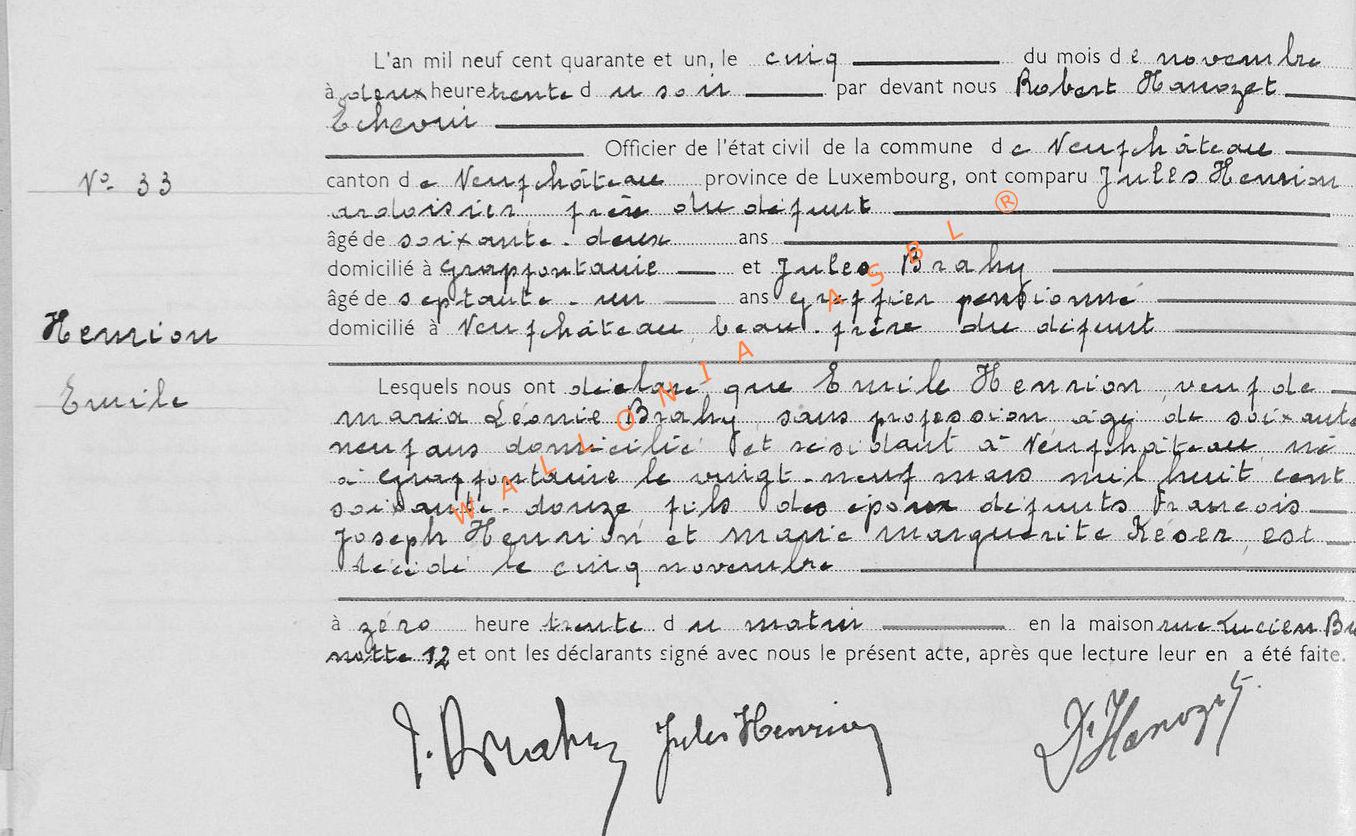 L'an mil neuf cent quarante et un, le cinq du mois de novembre
à deux heure trente du soir par devant nous Robert Hanozet
Echevin
Officier de l'état civil de la commune de Neufchâteau
N° 33
canton de Neufchâteau province de Luxembourg, ont comparu Jules Henrion
ardoisier, frère du défunt
âgé de soixante-deux ans
domicilié à Grapfontaine et Jules Brahy
âgé de septante-un ans greffier pensionné
Henrion
domicilié à Neufchâteau, beau-frère du défunt
Emile
Lesquels nous ont déclaré que Emile Henrion, veuf de
Maria Léonie Brahy, sans profession, âgé de soixante
neuf ans domicilié et résidant à Neufchâteau, né
à Grapfontaine le vingt-neuf mars mil huit cent
soixante-douze, fils des époux défunts François
Joseph Henrion et Marie Marguerite Késer, est
décédé le cinq novembre
à zéro heure trente du matin en la maison rue Lucien Bu
notte 12 et ont les déclarants signé avec nous le présent acte, après que lecture leur en a été faite.
J. Brahy Jules Henrion Dr Hanozet
WALLONIA ASBL ®